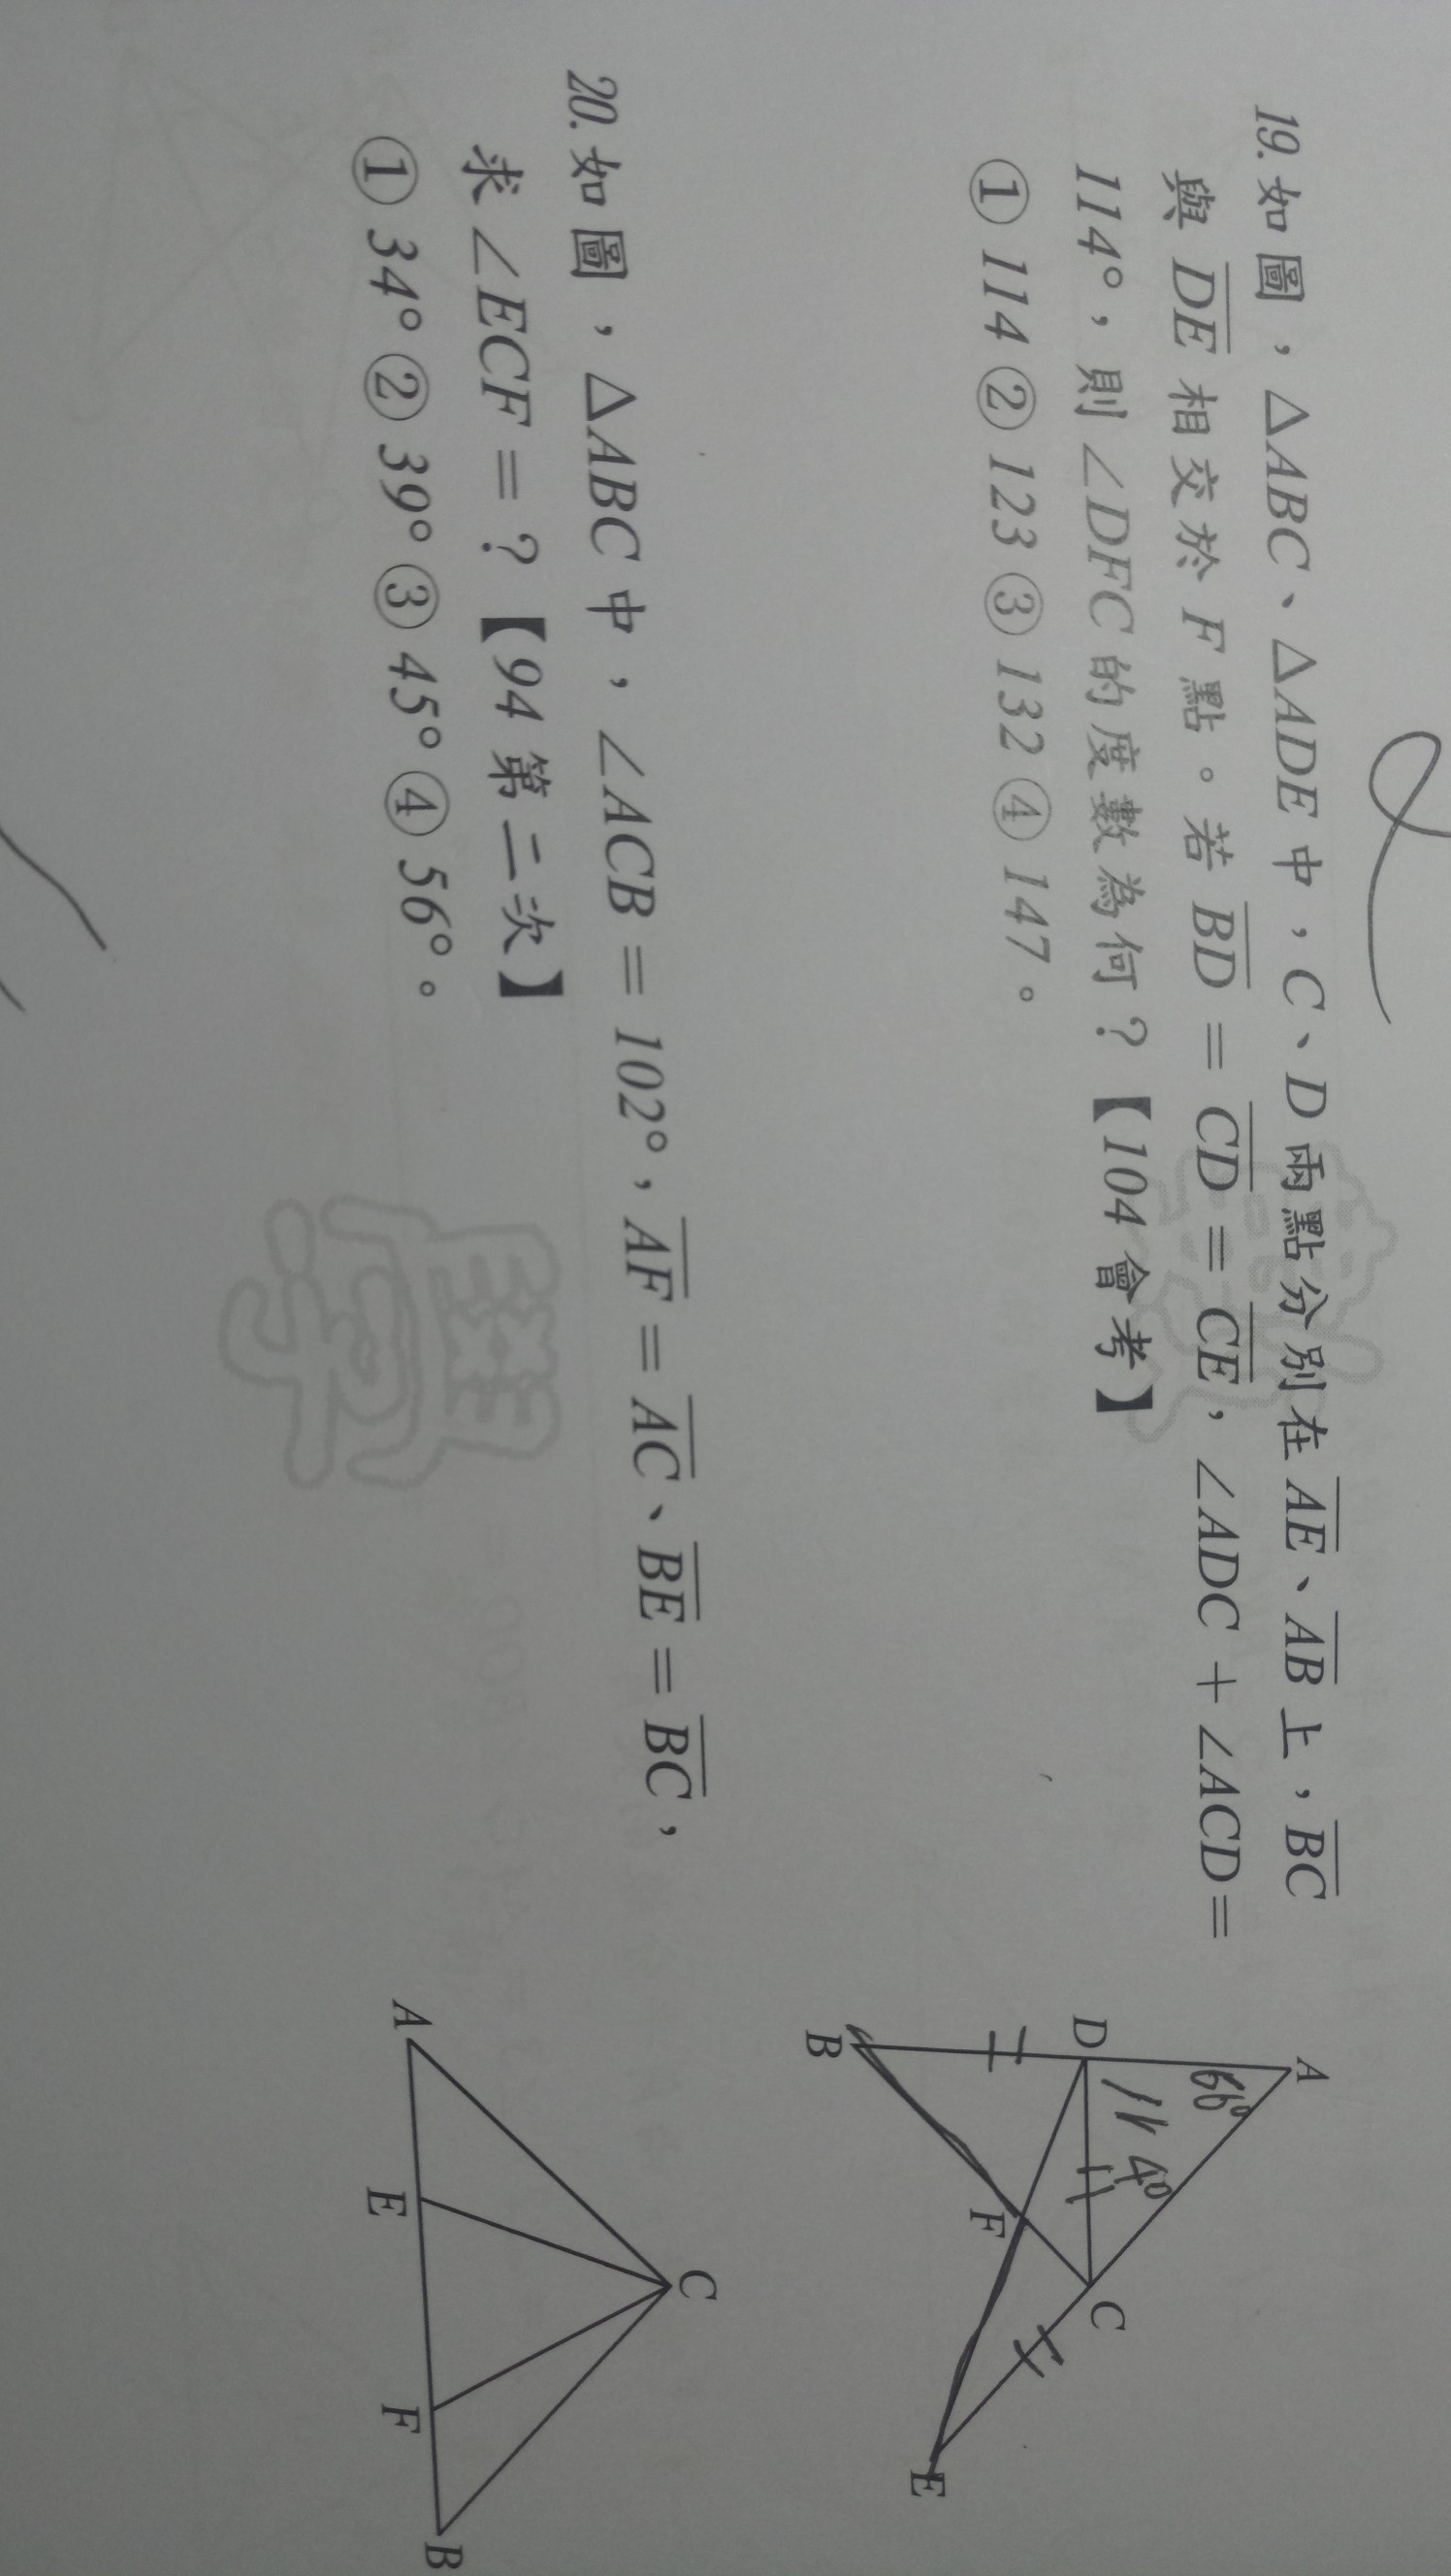 19.如圖，△ABC、△ADE中，C、D兩點分別在AE、AB上，BC
與DE相交於F點。若BD＝CD＝CE，∠ADC＋∠ACD＝
114°，則∠DFC的度數為何？【104會考】
①114②123③132④147。
A
66°
D
114°
B
F
C
E
20.如圖，△ABC中，∠ACB＝102°，AF＝AC、BE＝BC，
求∠ECF＝？【94第二次】
①34°②39°③45°④56°。
C
A
E
F
B